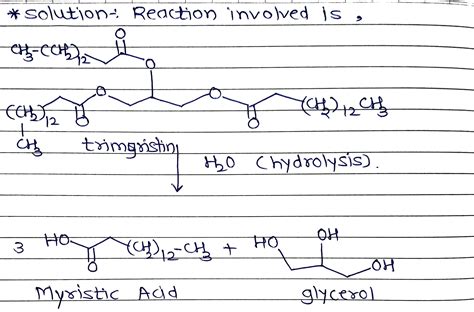 *Solution:- Reaction involved is,
O
CH3-(CH2)12 O
O O
(CH2)12 O O (CH2)12 CH3
CH3 trimyristin
H2O (hydrolysis).
3 HO (CH2)12-CH3 + HO OH
O OH
Myristic Acid glycerol